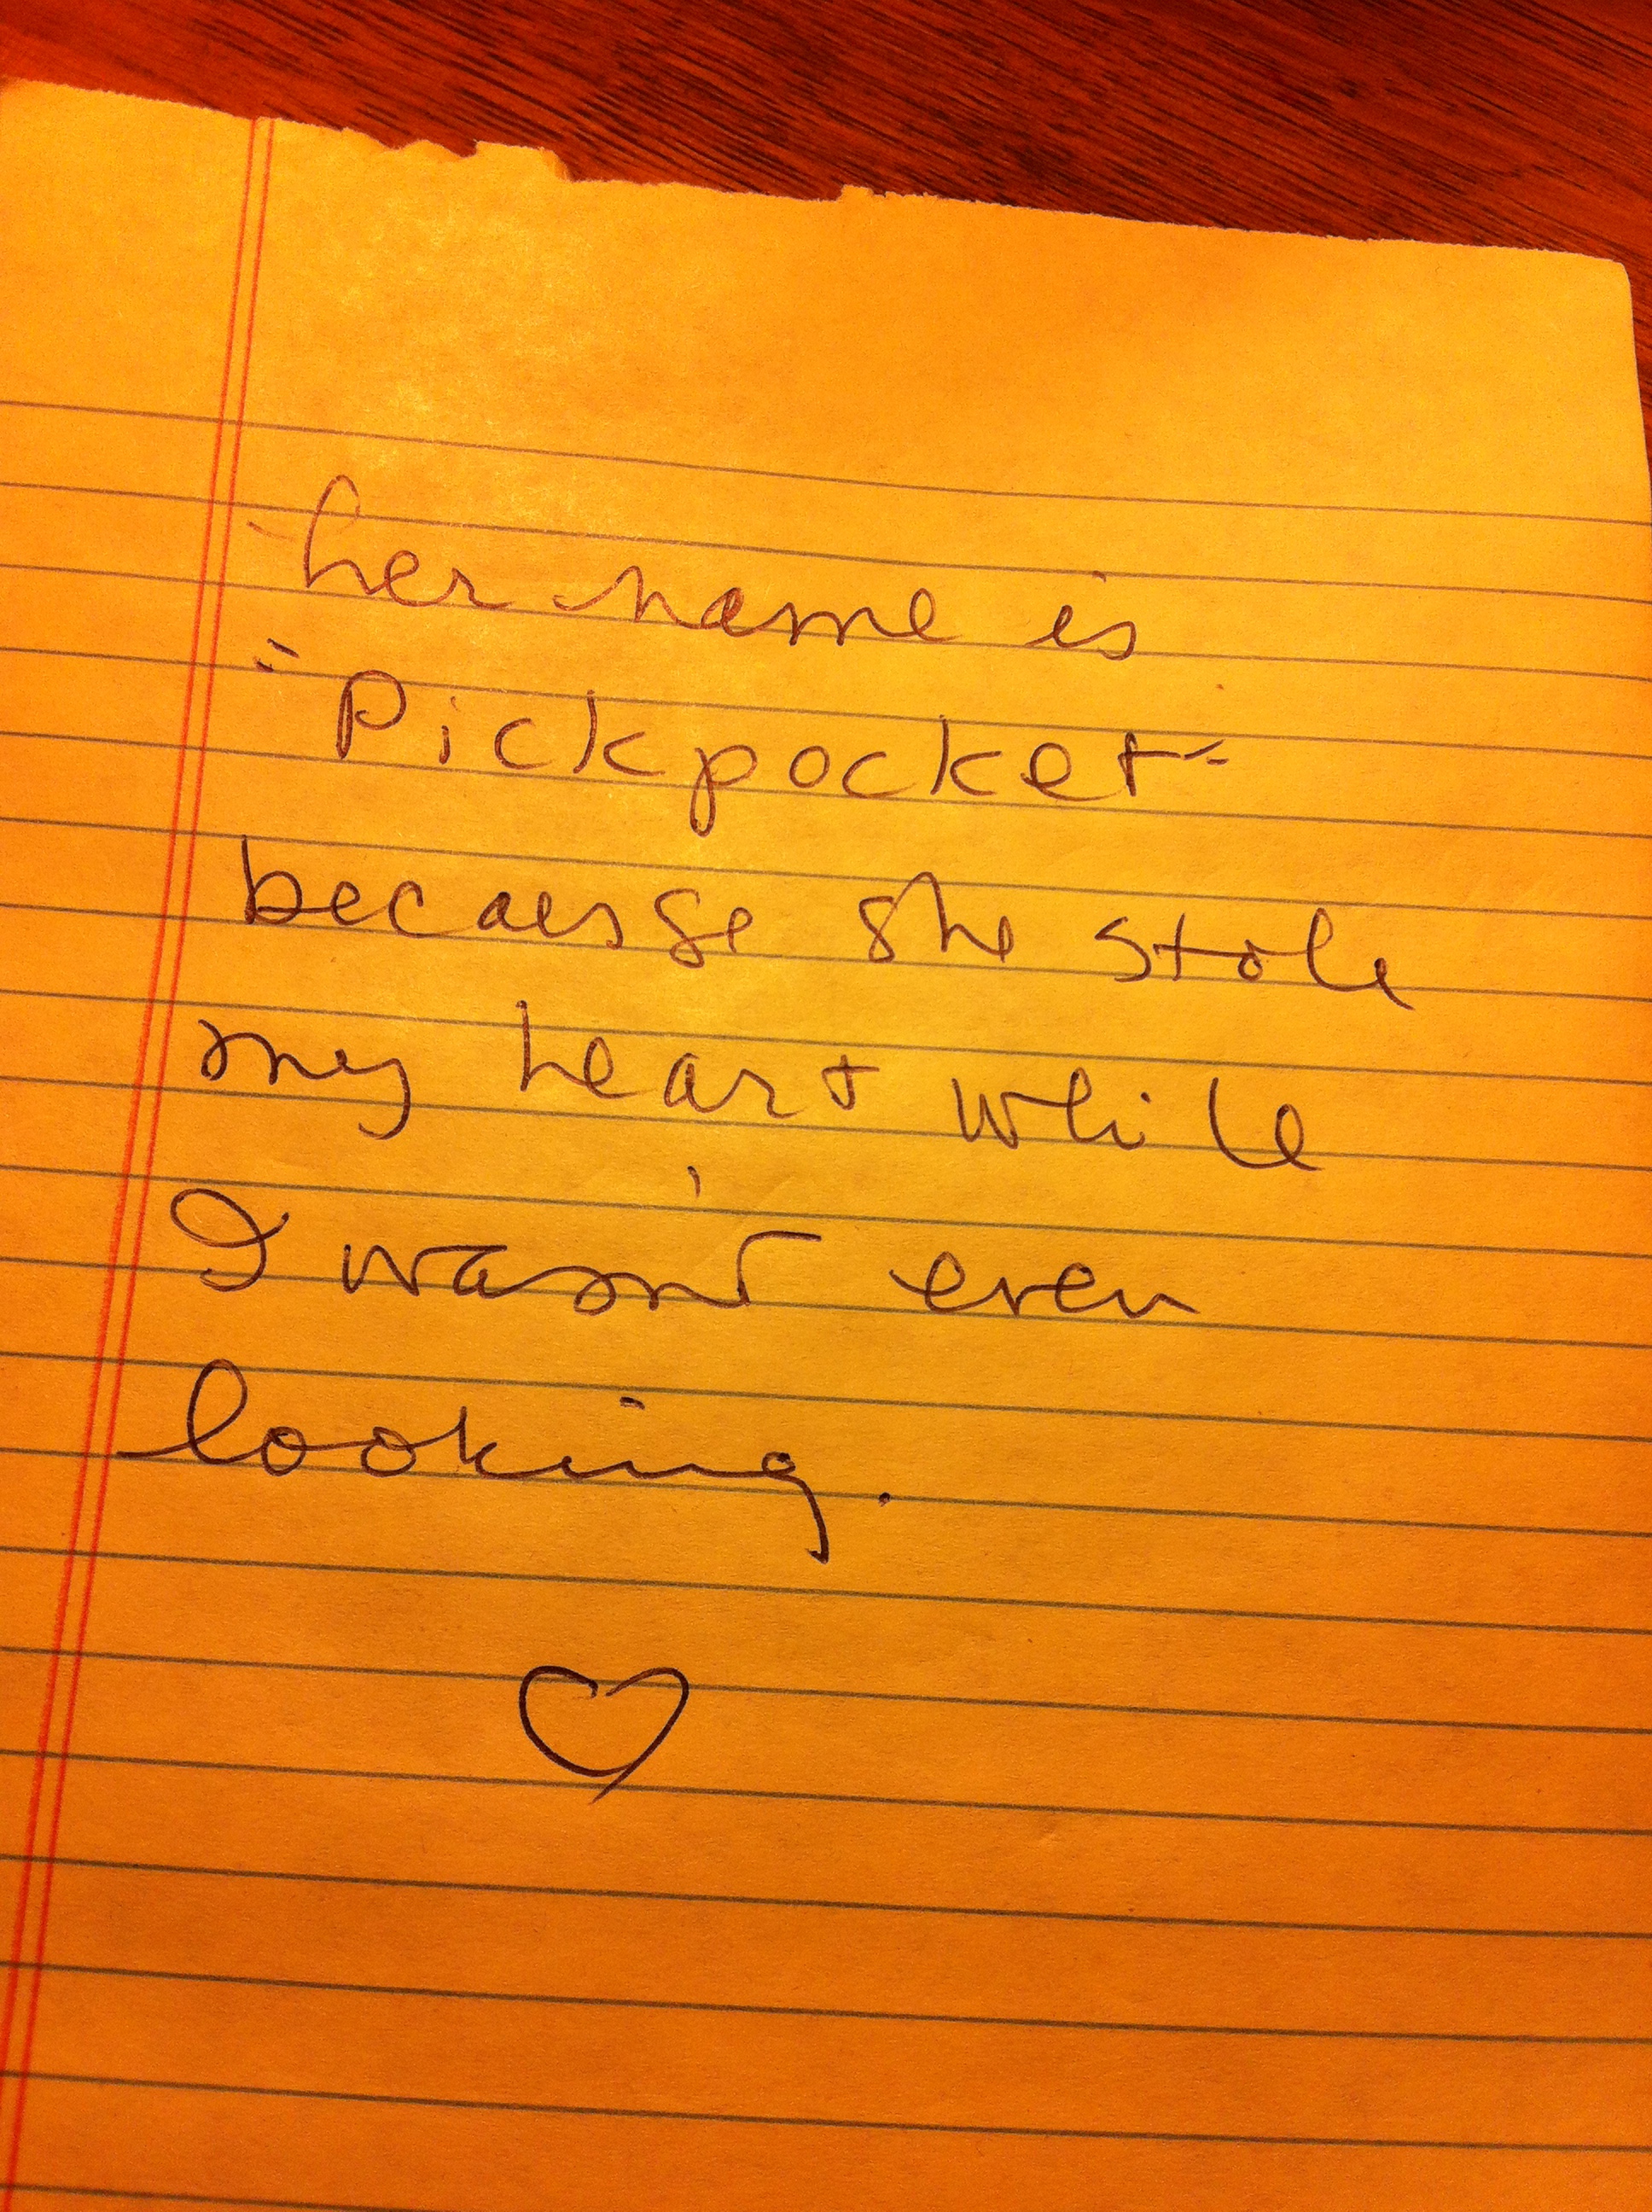 her name is
"Pickpocket"
because she stole
my heart while
I wasn't even
looking.